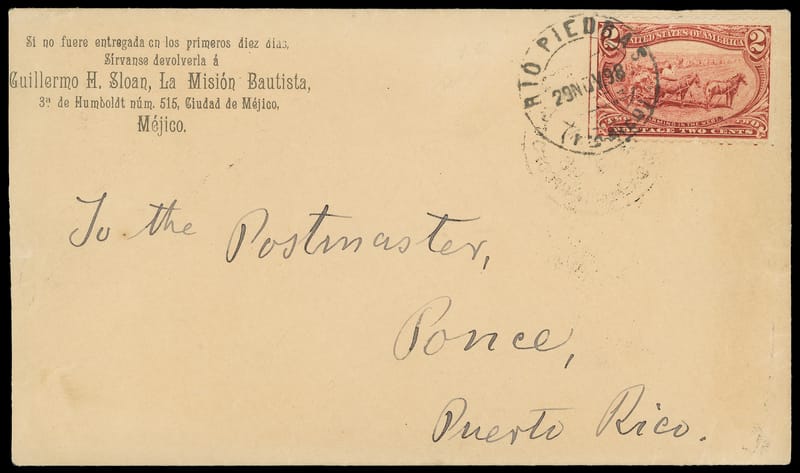 Si no fuere entregada en los primeros diez días,
Sírvanse devolverla á
Guillermo H. Sloan, La Misión Bautista,
3ª de Humboldt núm. 515, Ciudad de Méjico,
Méjico.
RIO PIEDRAS
29 NOV 98
2 UNITED STATES OF AMERICA 2
FARMING IN THE WEST.
POSTAGE TWO CENTS
To the Postmaster,
Ponce,
Puerto Rico.